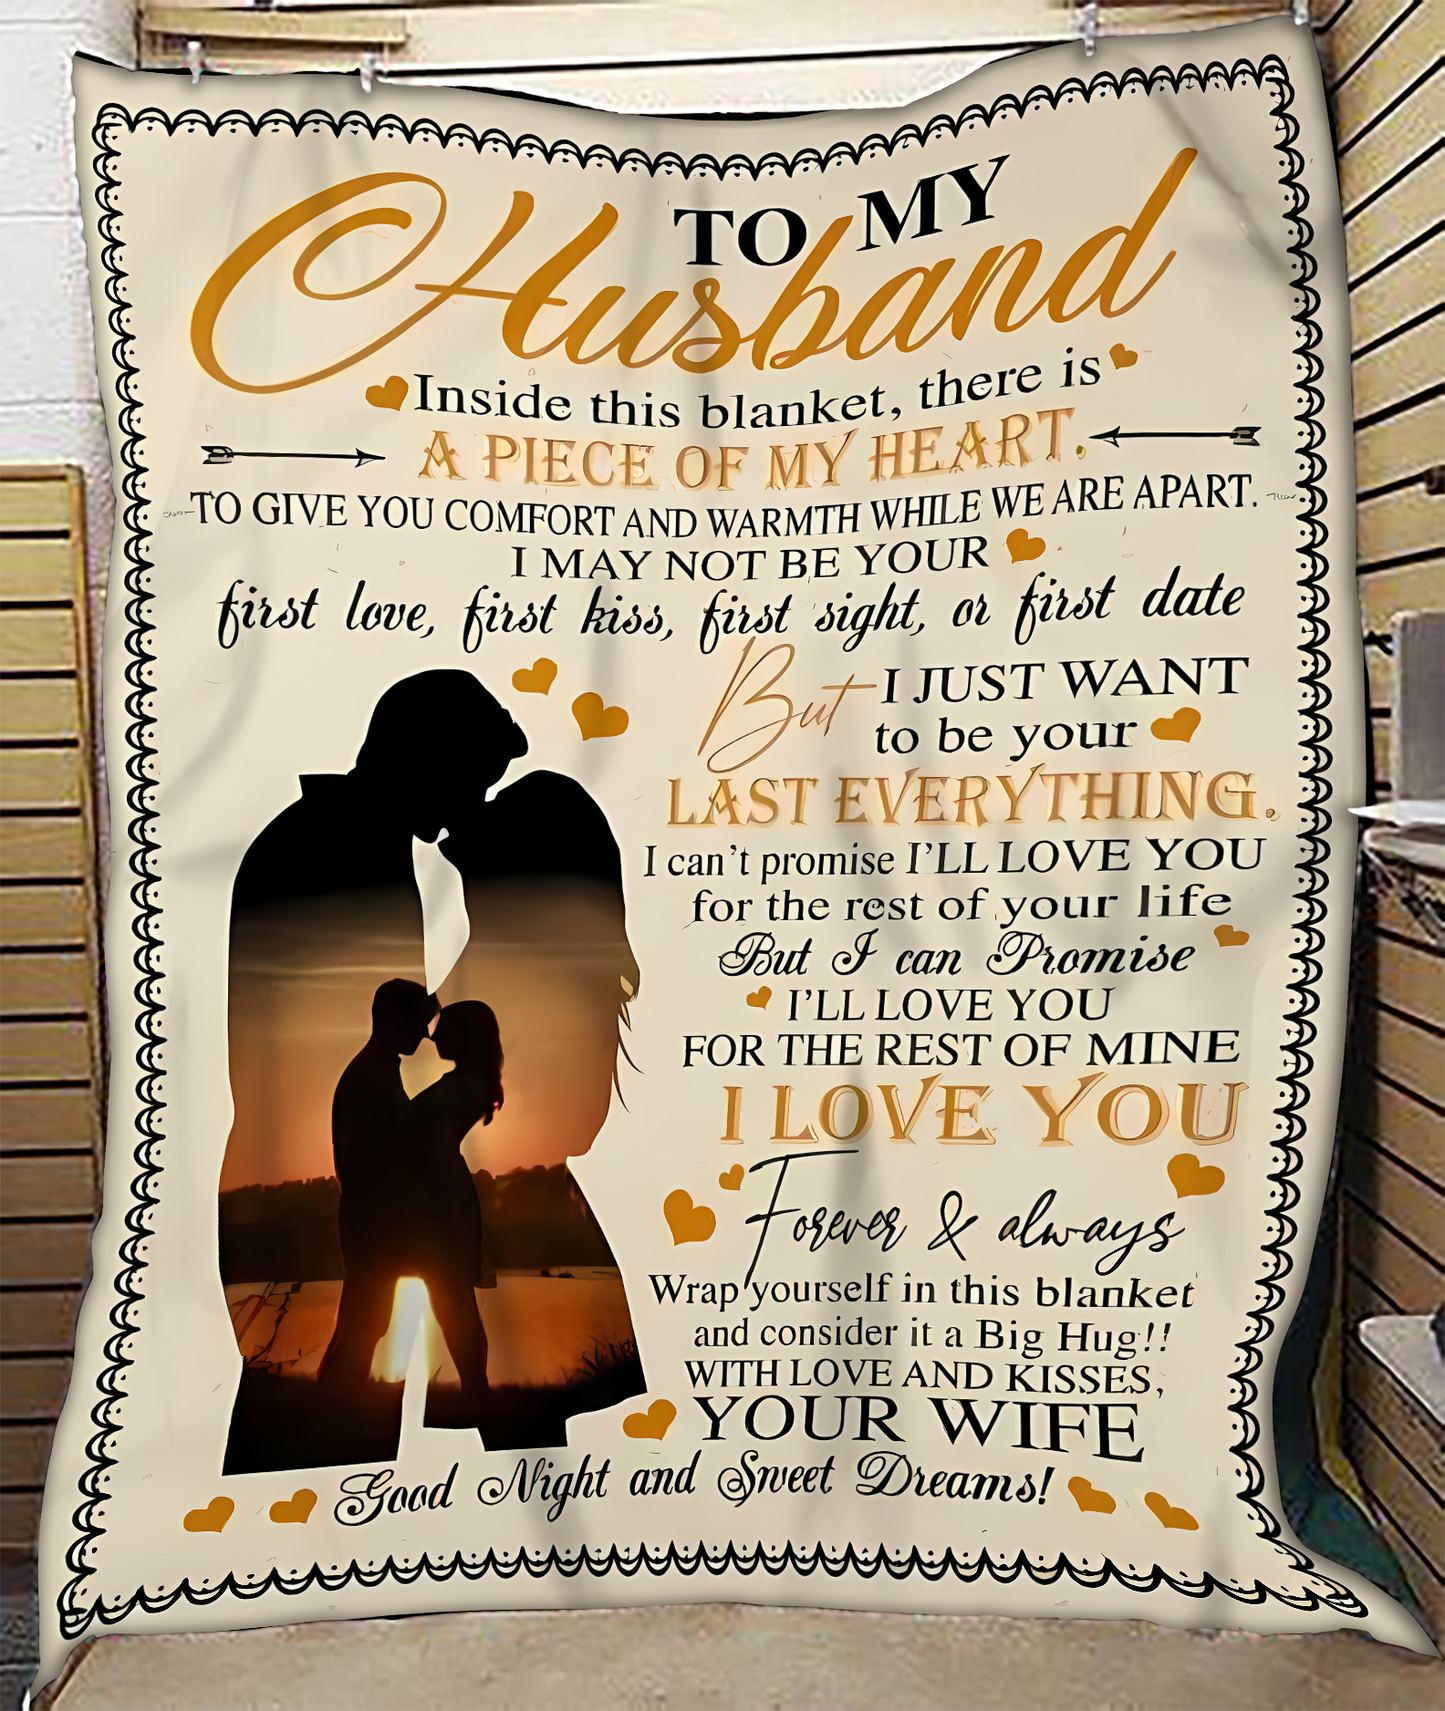 TO MY
Husband
Inside this blanket, there is
A PIECE OF MY HEART.
TO GIVE YOU COMFORT AND WARMTH WHILE WE ARE APART.
I MAY NOT BE YOUR
first love, first kiss, first sight, or first date
But I JUST WANT
to be your
LAST EVERYTHING.
I can't promise I'LL LOVE YOU
for the rest of your life
But I can Promise
I'LL LOVE YOU
FOR THE REST OF MINE
I LOVE YOU
Forever & always
Wrap yourself in this blanket
and consider it a Big Hug!!
WITH LOVE AND KISSES,
YOUR WIFE
Good Night and Sweet Dreams!